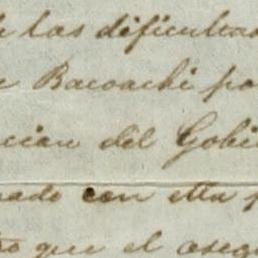 las dificultad
Bacoachi po
cion del Gobi
nado con esta p
que el aseg